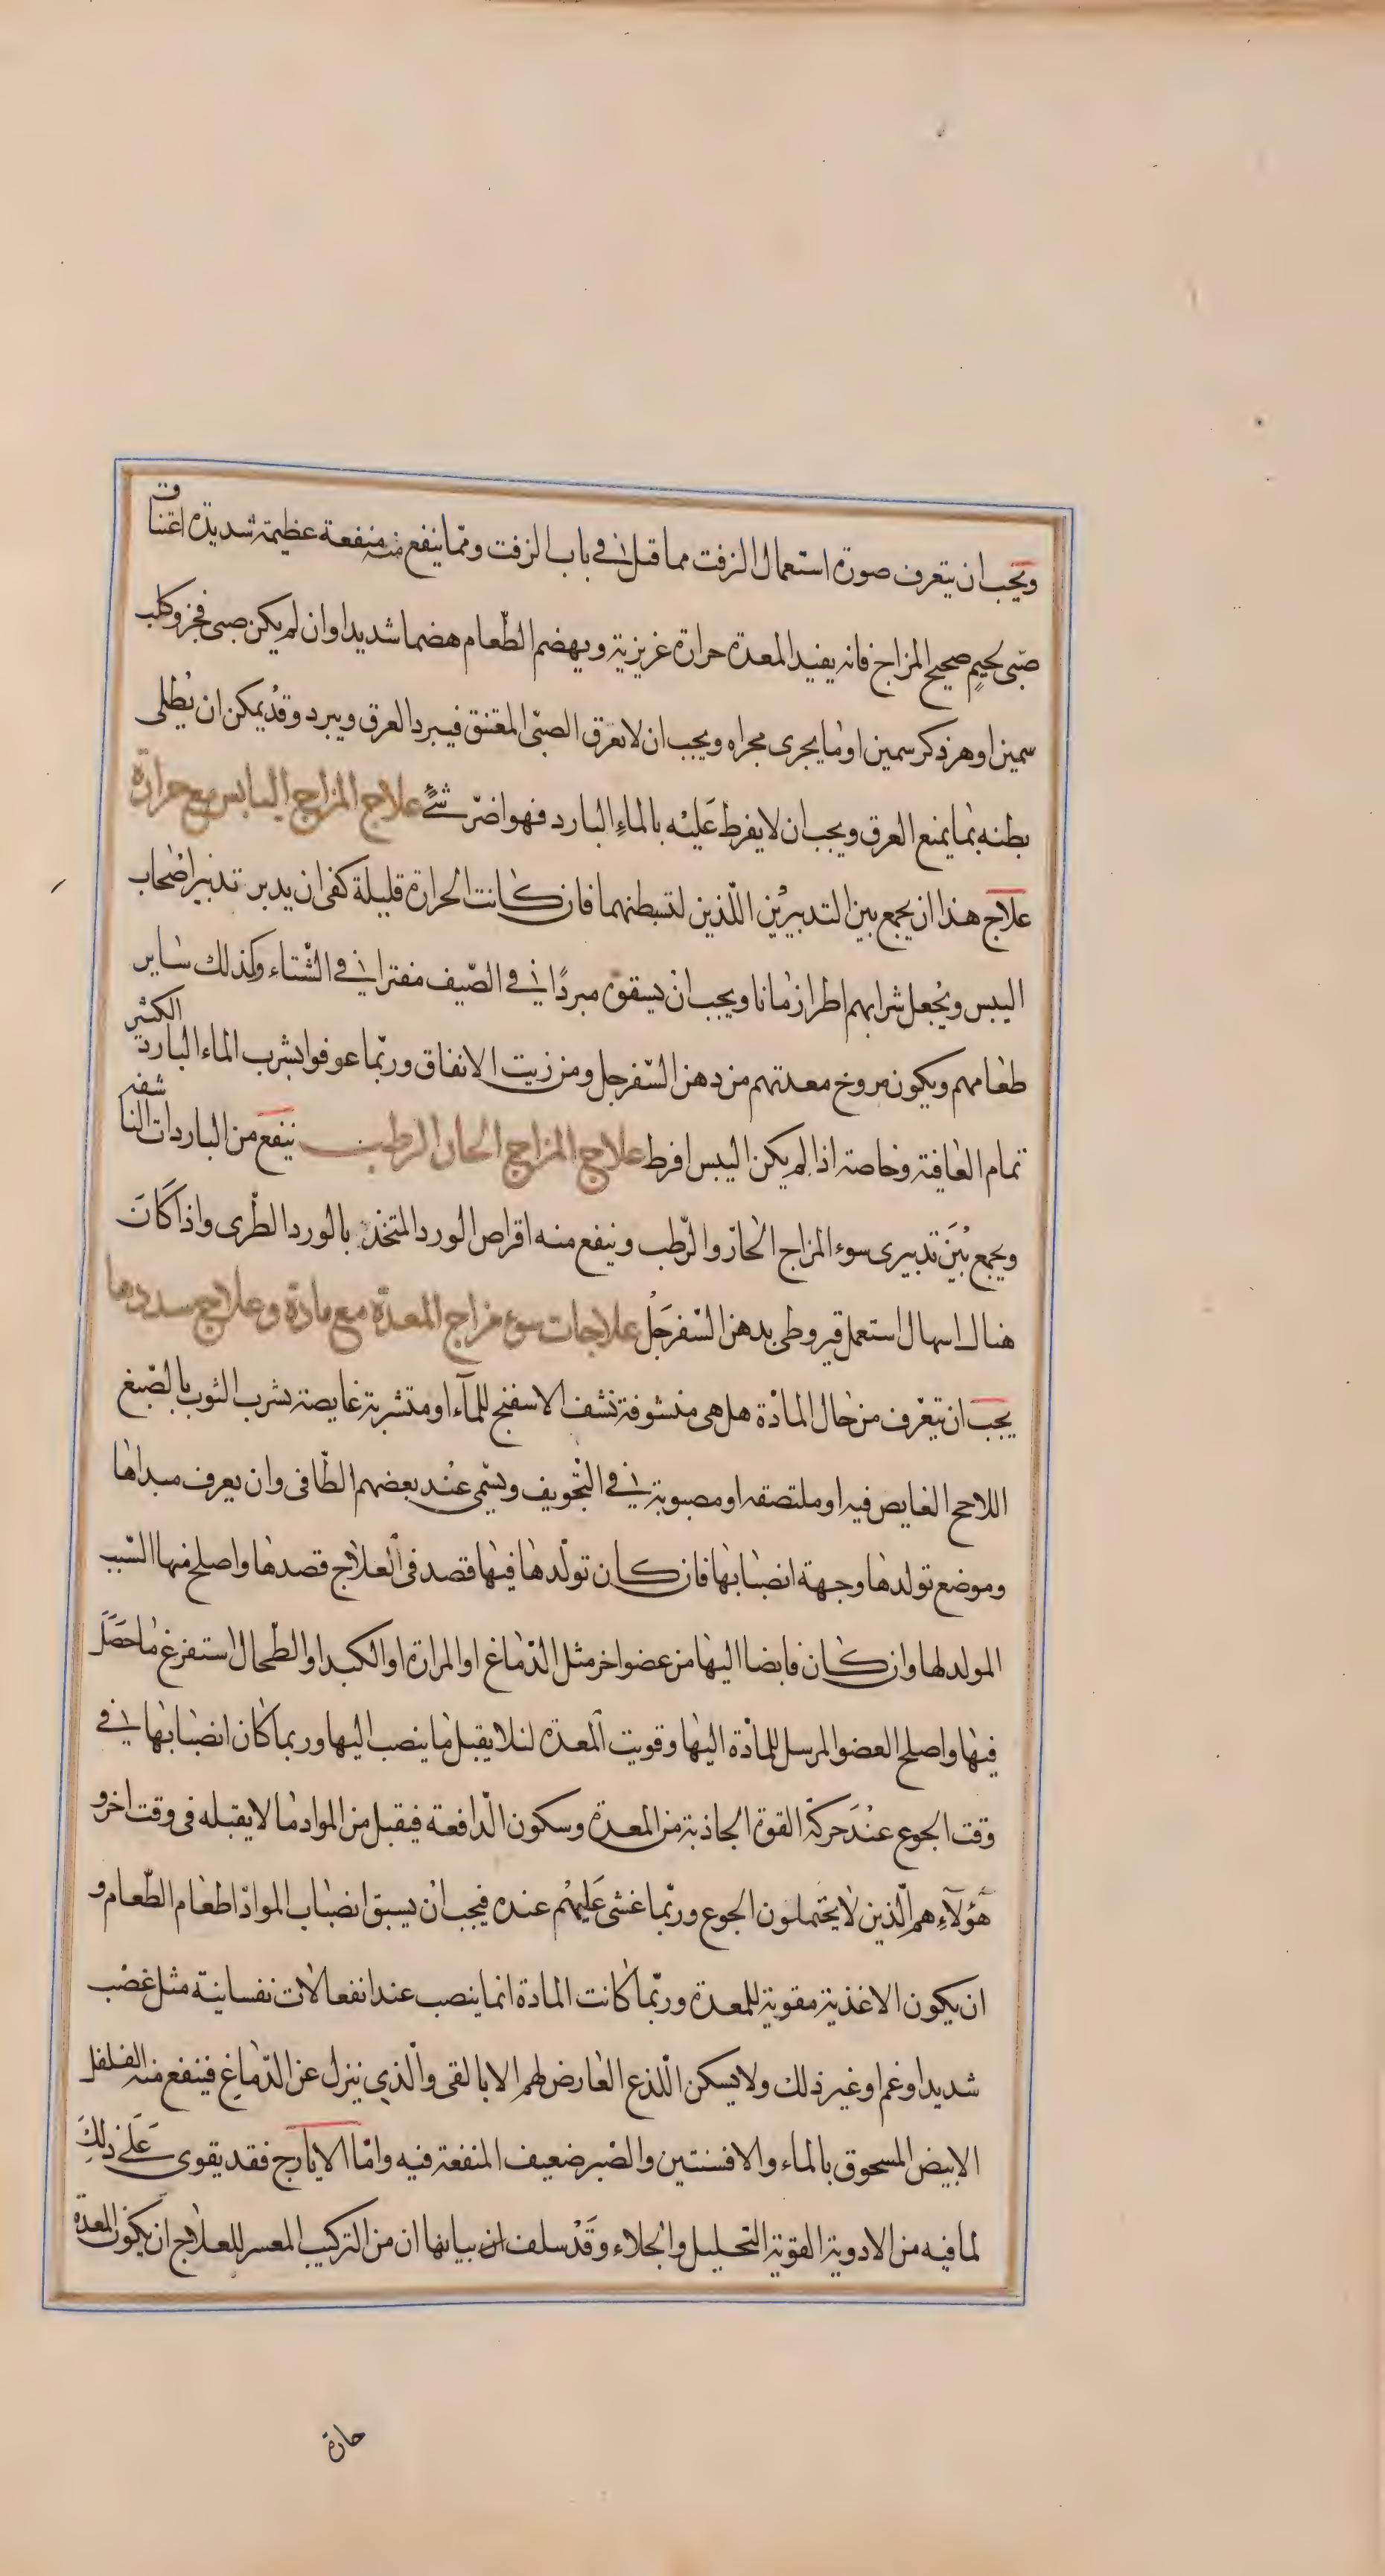 ويجب ان يتعرف صورة استعمال الزفت مما قيل في باب الزفت ومما ينفع منه منفعة عظيمة شديدة اعتناق
صبى لحيم صحيح المزاج فانه يفيد المعدة حرارة غريزية ويهضم الطعام هضما شديدا وان لم يكن صبى فجرو كلب
سمين او هر ذكر سمين او ما يجرى مجراه ويجب ان لا تعرق الصبى المعتنق فيبرد العرق ويبرد وقد يمكن ان يطلى
بطنه بما يمنع العرق ويجب ان لا يفرط عليه بالماء البارد فهو اضر شئ علاج المزاج اليابس مع حرارة
علاج هذا ان يجمع بين التدبيرين اللذين لتسبطنهما فان كانت الحرارة قليلة كفى ان يدبر تدبير اصحاب
اليبس ويجعل شرابهم اطرا زمانا ويجب ان يسقوه مبردا في الصيف مفترا في الشتاء وكذلك ساير
طعامهم ويكون مروخ معدتهم من دهن السفرجل ومن زيت الانفاق وربما عوفوا بشرب الماء البارد الكثير
تمام العافية وخاصة اذا لم يكن اليبس افرط علاج المزاج الحار الرطب ينفع من الباردات الناشفه
ويجمع بين تدبيرى سوء المزاج الحار والرطب وينفع منه اقراص الورد المتخذ بالورد الطرى واذا كان
هناك اسهال استعمل قيروطى بدهن السفرجل علاجات سوء مزاج المعدة مع مادة وعلاج سددها
يجب ان يتعرف من حال المادة هل هى منشوفة نشف الاسفنج للماء او متشربة غايصة تشرب الثوب بالصبغ
اللاحج الغايص فيه او ملتصقه او مصبوبة في التجويف ويسمى عند بعضهم الطافى وان يعرف مبداها
وموضع تولدها وجهة انصبابها فان كان تولدها فيها قصد فى العلاج قصدها واصلح منها السبب
المولد لها وان كان فايضا اليها من عضو اخر مثل الدماغ او المرارة او الكبد او الطحال استفرغ ما حصل
فيها واصلح العضو المرسل للمادة اليها وقويت المعدة لئلا يقبل ما ينصب اليها وربما كان انصبابها في
وقت الجوع عند حركة القوة الجاذبة من المعدة وسكون الدافعة فيقبل من المواد ما لا يقبله فى وقت اخر و
هؤلاء هم الذين لا يحتملون الجوع وربما غشى عليهم عنده فيجب ان يسبق انصباب المواد اطعام الطعام و
ان يكون الاغذية مقوية للمعدة وربما كانت المادة انما ينصب عند انفعالات نفسانية مثل غضب
شديد او غم او غير ذلك ولا يسكن اللذع العارض لهم الا بالقى والذي ينزل عن الدماغ فينفع منه الفلفل
الابيض المسحوق بالماء والافسنتين والصبر ضعيف المنفعة فيه واما الايارج فقد يقوى على ذلك
لما فيه من الادوية القوية التحليل والجلاء وقد سلف ان بيانها ان من التركيب المعسر للعلاج ان يكون المعدة
حارة